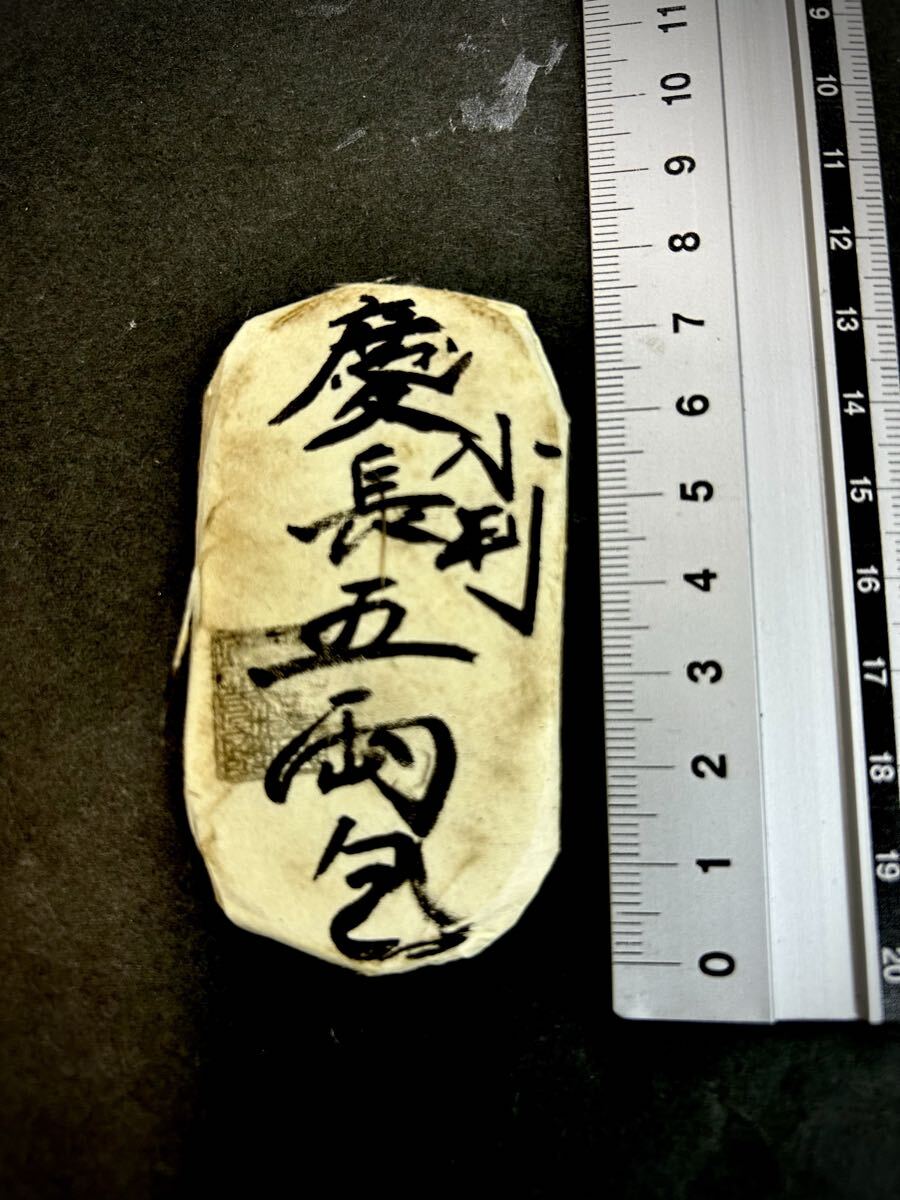 慶長五両包
小判
11
10
9
8
7
6
5
4
3
2
1
0
9
10
11
12
13
14
15
16
17
18
19
20